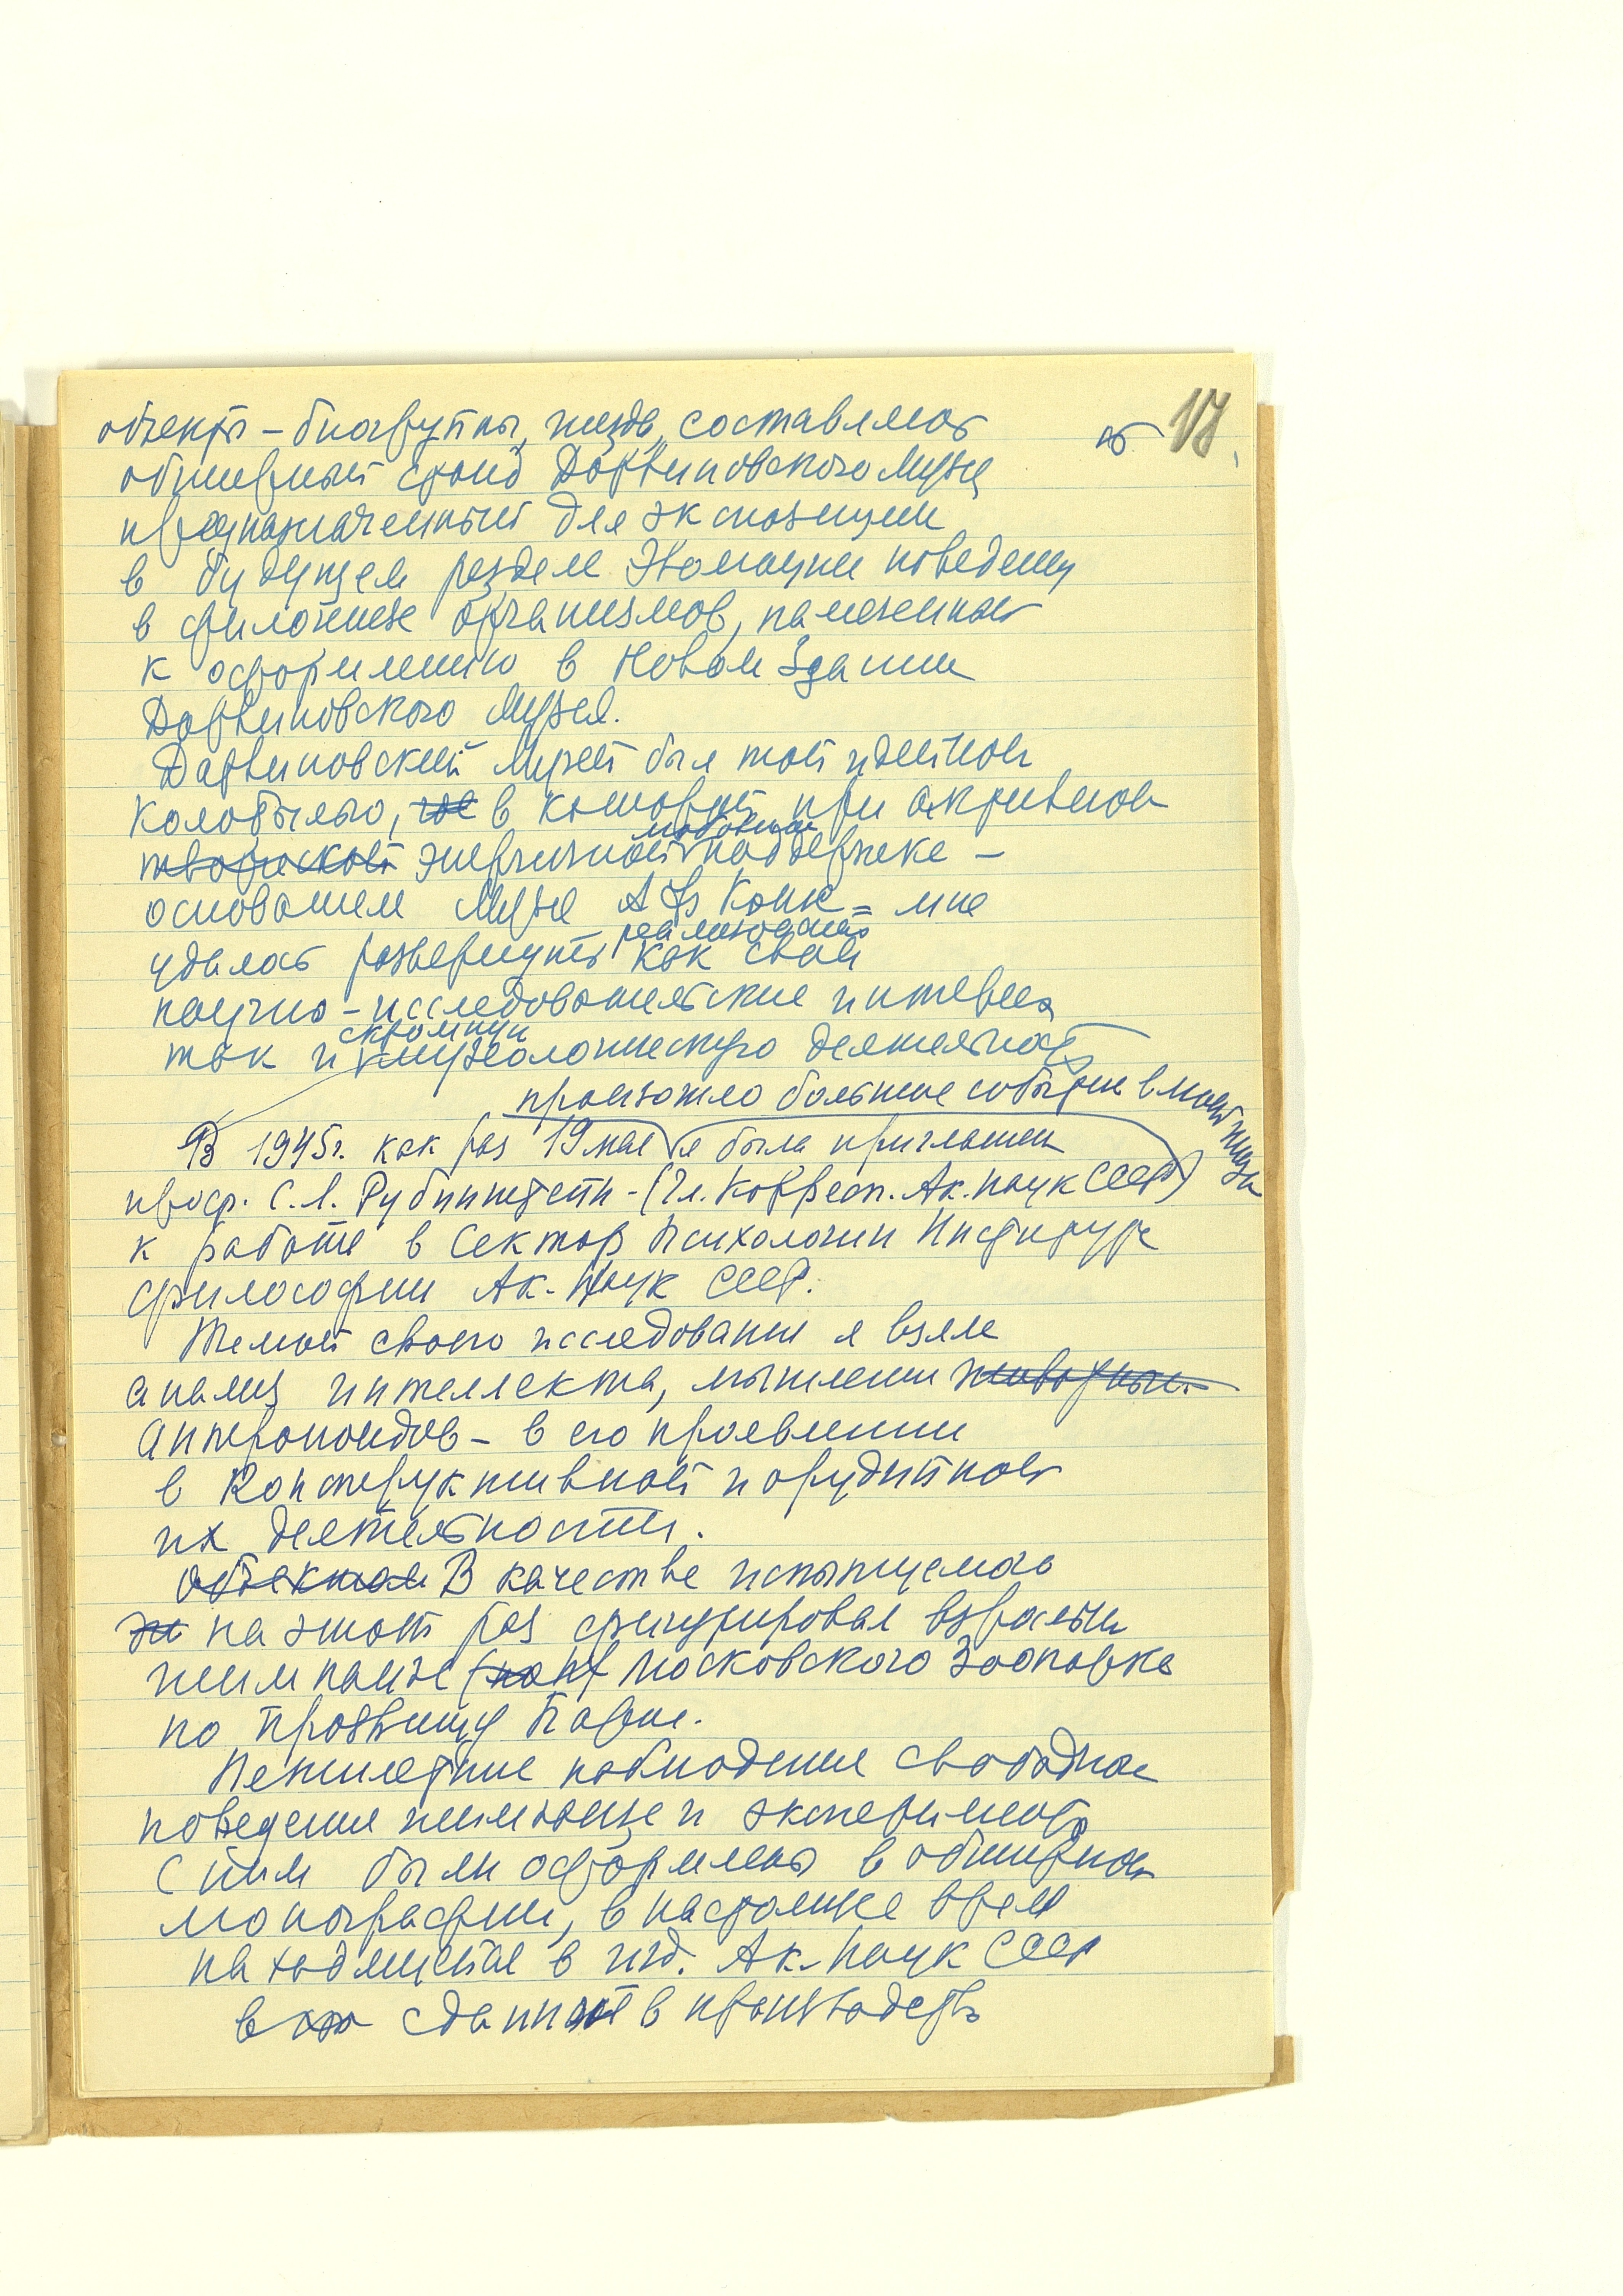 17
объекты – биогруппы, гнезда, составляют
обширный фонд Дарвиновского Музея
предназначенный для экспозиции
в будущем разделе Эволюции поведения
в филогенезе организмов, намеченном
к оформлению в Новом Здании
Дарвиновского Музея.
Дарвиновский Музей был той идейной
колыбелью, где в которой при активной
творческой энергичной моральной поддержке –
основателя Музея А Ф Котс = мне
удалось развернуть реализовать как свои
научно-исследовательские интересы
так и скромную музеологическую деятельность
произошло большое событие в моей жизни
В 1945г. как раз 19 мая я была приглашена
проф. С. Л. Рубинштейн - (Чл. Корресп. Ак. Наук СССР)
к работе в Сектор Психологии Института
философии Ак. Наук СССР.
Темой своего исследования я взяла
анализ интеллекта, мышления животных
антропоидов – в его проявлении
в конструктивной и орудийной
их деятельности.
Объектом В качестве испытуемого
на этот раз фигурировал взрослый
шимпанзе Московского Зоопарка
по прозвищу Парис.
наблюдение свободного
поведения шимпанзе и эксперименты
с ним были оформлены в обширной
монографии, в настоящее время
находящейся в изд. Ак. Наук СССР
сданной в производство